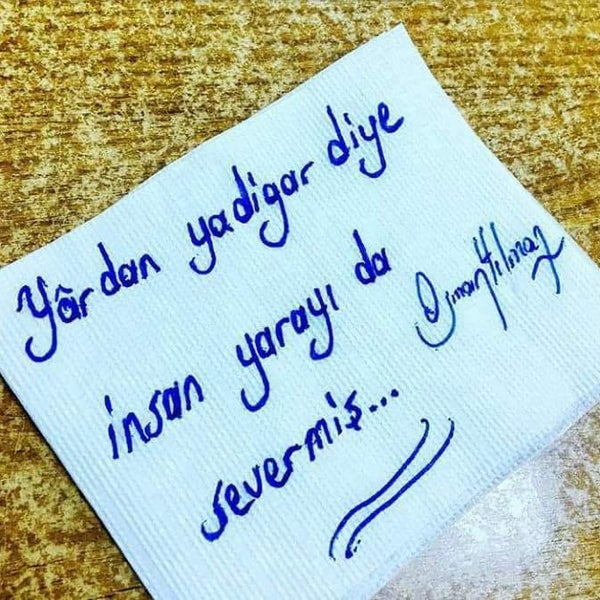 Yârdan yadigar diye
insan yarayı da
severmiş...
Osman Yılmaz